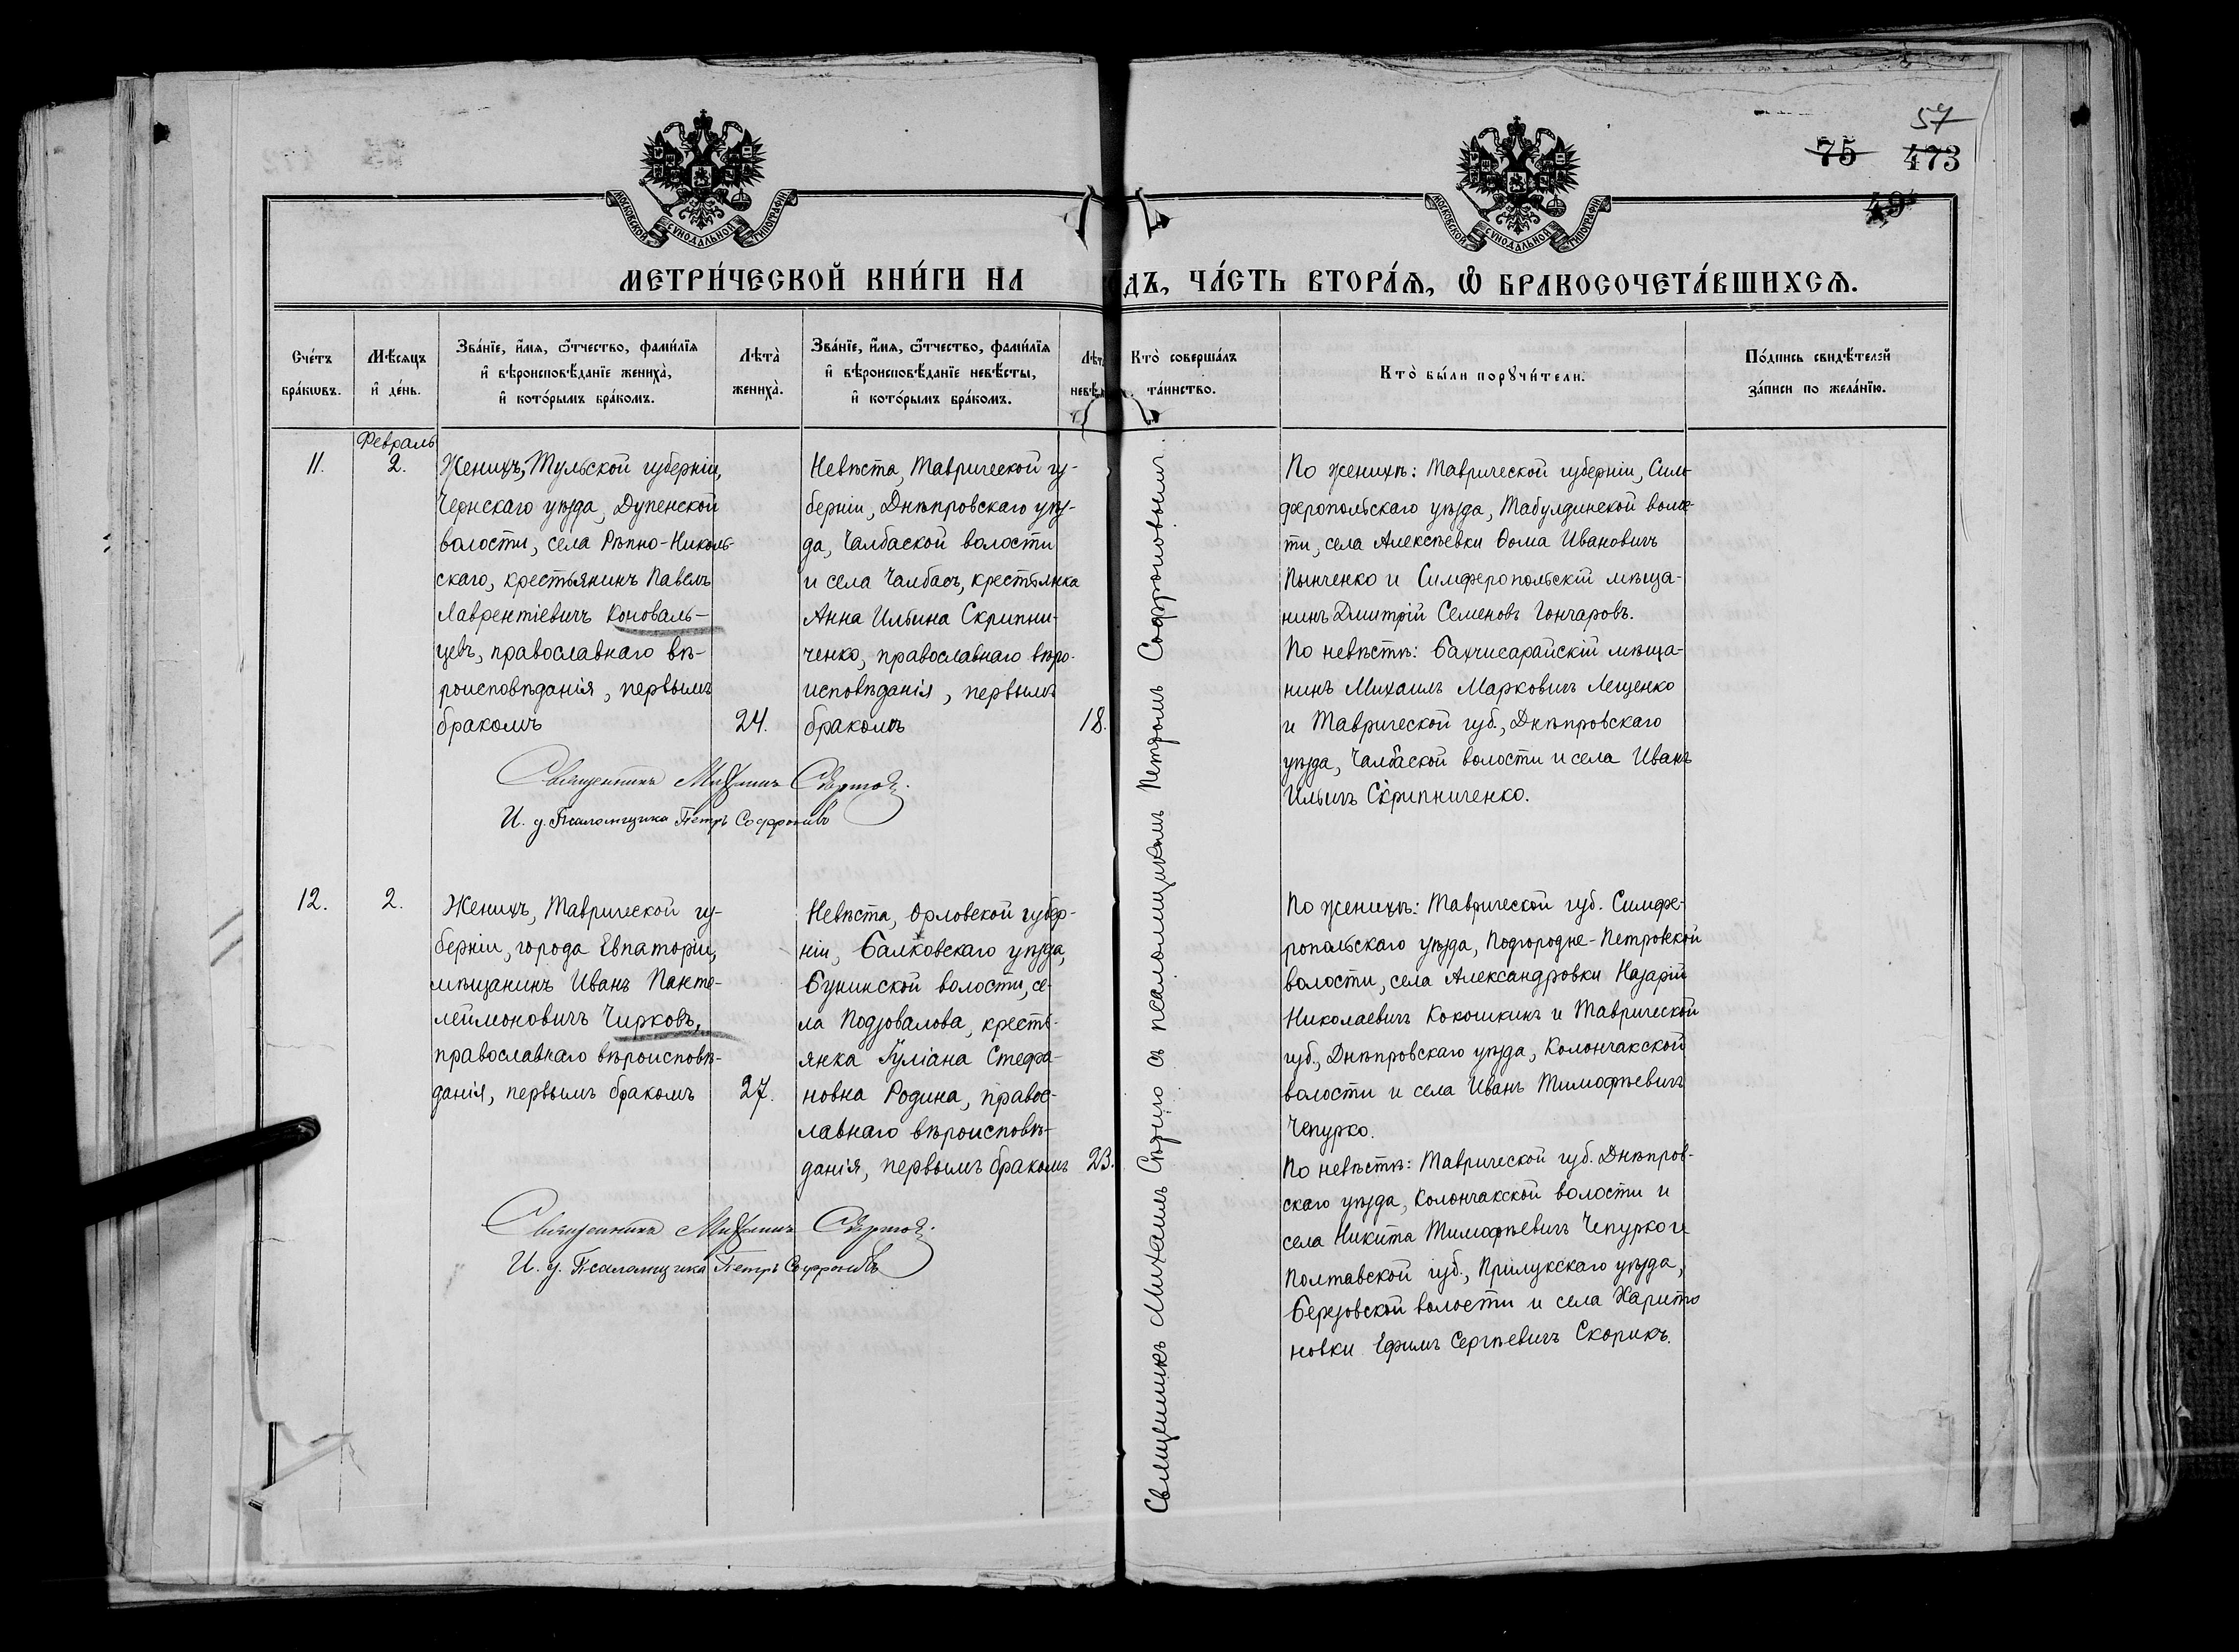 57
75 473
49
МОСКОВСКОЙ СѴНОДАЛЬНОЙ ТИПОГРАФІИ
МОСКОВСКОЙ СѴНОДАЛЬНОЙ ТИПОГРАФІИ
МЕТРИ́ЧЕСКОЙ КНИ́ГИ НА
ДЪ, ЧА́СТЬ ВТОРА́Ѧ, Ѡ҆ БРАКОСОЧЕТА́ВШИХСѦ.
Сче́тъ бра́кѡвъ.
Мѣ́сѧцъ и҆ де́нь.
Зва́нїе, и҆́мѧ, ѻ҆́тчество, фами́лїѧ
и҆ вѣроисповѣ́данїе жениха̀,
и҆ кото́рымъ бра́комъ.
Лѣта̀ жениха̀.
Зва́нїе, и҆́мѧ, ѻ҆́тчество, фами́лїѧ
и҆ вѣроисповѣ́данїе невѣ́сты,
и҆ кото́рымъ бра́комъ.
Кто̀ соверша́лъ
та́инство.
Кто̀ бы́ли порꙋчи́тели.
По́дпись свидѣ́телей
за́писи по жела́нїю.
Февраль
11.
2.
Женихъ, Тульской губерніи,
Чернскаго уѣзда, Дупенской
волости, села Рѣпно-Николь-
скаго, крестьянинъ Павелъ
Лаврентіевичъ Коноваль-
цевъ, православнаго вѣ-
роисповѣданія, первымъ
бракомъ
24.
Невѣста, Таврической гу-
берніи, Днѣпровскаго уѣз-
да, Чалбаской волости
и села Чалбасъ, крестьянка
Анна Ильина Скрипни-
ченко, православнаго вѣро-
исповѣданія, первымъ
бракомъ
18.
Священникъ Михаилъ
И. д. Псаломщика Петръ Софроновъ
Священникъ Михаилъ съ псаломщикомъ Петромъ Софроновымъ.
По женихѣ: Таврической губерніи, Сим-
феропольскаго уѣзда, Табулдинской волос-
ти, села Алексѣевки Ѳома Ивановичъ
Пынченко и Симферопольскій мѣща-
нинъ Дмитрій Семеновъ Гончаровъ.
По невѣстѣ: Бахчисарайскій мѣща-
нинъ Михаилъ Марковичъ Лещенко
и Таврической губ., Днѣпровскаго
уѣзда, Чалбаской волости и села Иванъ
Ильичъ Скрипниченко.
12.
2.
Женихъ, Таврической гу-
берніи, города Евпаторіи,
мѣщанинъ Иванъ Панте-
леймоновичъ Чирковъ,
православнаго вѣроисповѣ-
данія, первымъ бракомъ
27.
Невѣста, Орловской губер-
ніи, Балковскаго уѣзда,
Бунинской волости, се-
ла Подзовалова, кресть-
янка Іуліана Стефа-
новна Родина, правос-
лавнаго вѣроисповѣ-
данія, первымъ бракомъ
23.
Священникъ Михаилъ
И. д. Псаломщика Петръ Софроновъ
По женихѣ: Таврической губ. Симфе-
ропольскаго уѣзда, Подгородне-Петровской
волости, села Александровки Назарій
Николаевичъ Кокошкинъ и Таврической
губ., Днѣпровскаго уѣзда, Колончакской
волости и села Иванъ Тимофѣевичъ
Чепурко.
По невѣстѣ: Таврической губ. Днѣпров-
скаго уѣзда, Колончакской волости и
села Никита Тимофѣевичъ Чепурко и
Полтавской губ., Прилукскаго уѣзда,
Березовской волости и села Харито
новки Ефимъ Сергѣевичъ Скорикъ.